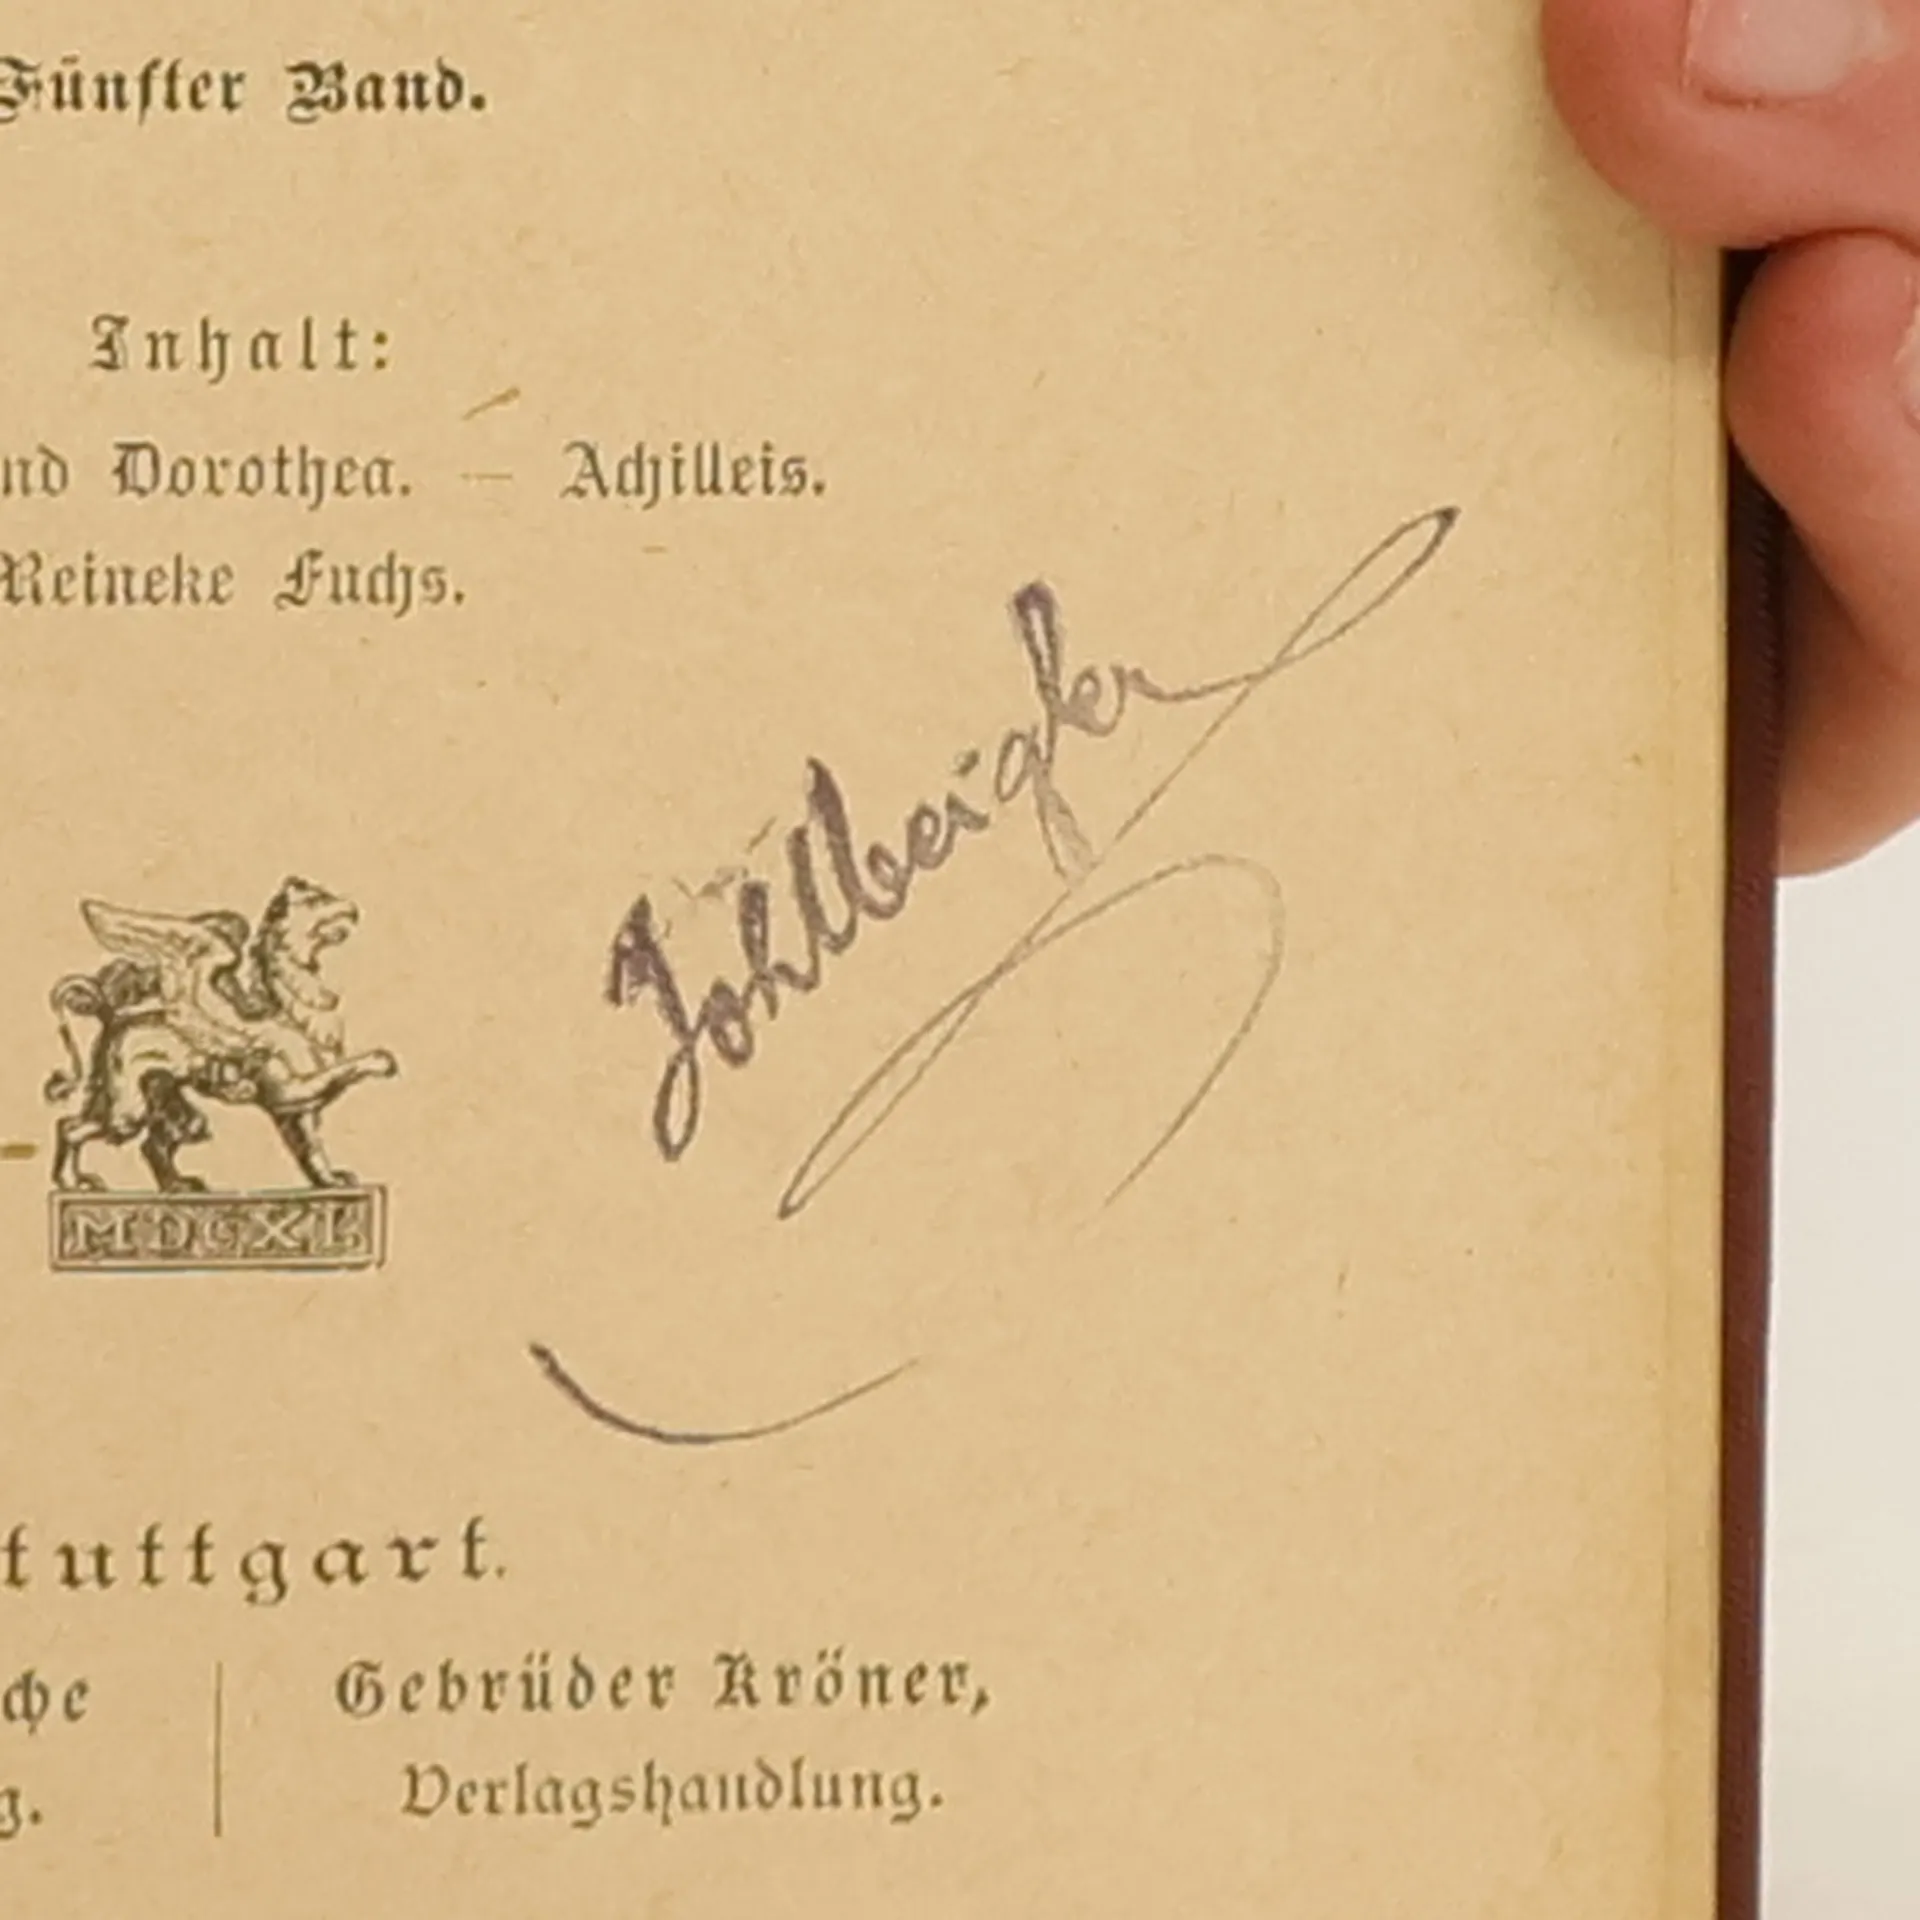 Fünfter Band.
Inhalt:
nd Dorothea. — Achilleis.
Reineke Fuchs.
MDCXL
tuttgart.
che
g.
Gebrüder Kröner,
Verlagshandlung.